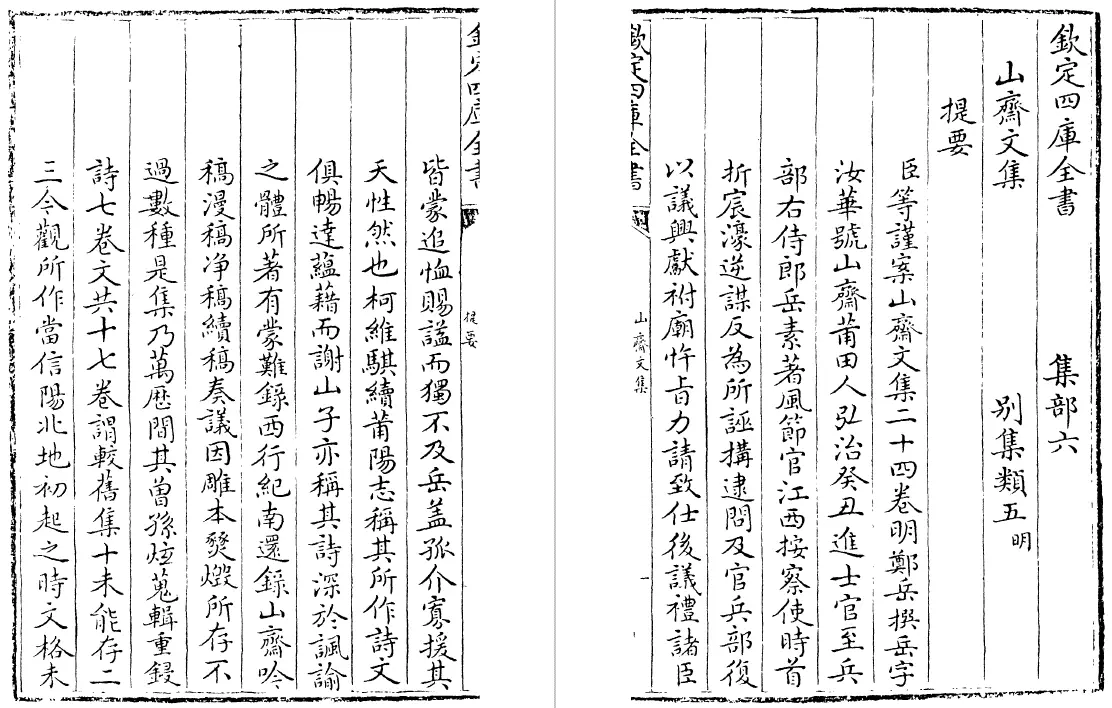 欽定四庫全書 集部六
山齋文集 别集類五明
提要
臣等謹案山齋文集二十四卷明鄭岳撰岳字
汝華號山齋莆田人弘治癸丑進士官至兵
部右侍郎岳素著風節官江西按察使時首
折宸濠逆謀反為所誣搆逮問及官兵部復
以議興獻祔廟忤㫖力請致仕後議禮諸臣
欽定四庫全書 山齋文集 提要 一
皆蒙追恤賜諡而獨不及岳盖孤介寡援其
天性然也柯維騏續莆陽志稱其所作詩文
俱暢達蘊藉而謝山子亦稱其詩深於諷諭
之體所著有蒙難錄西行紀南還錄山齋吟
稿漫稿净稿續稿奏議因雕本燹燬所存不
過數種是集乃萬歴間其曽孫炫蒐輯重鋟
詩七卷文共十七卷謂較舊集十未能存二
三今觀所作當信陽北地初起之時文格未